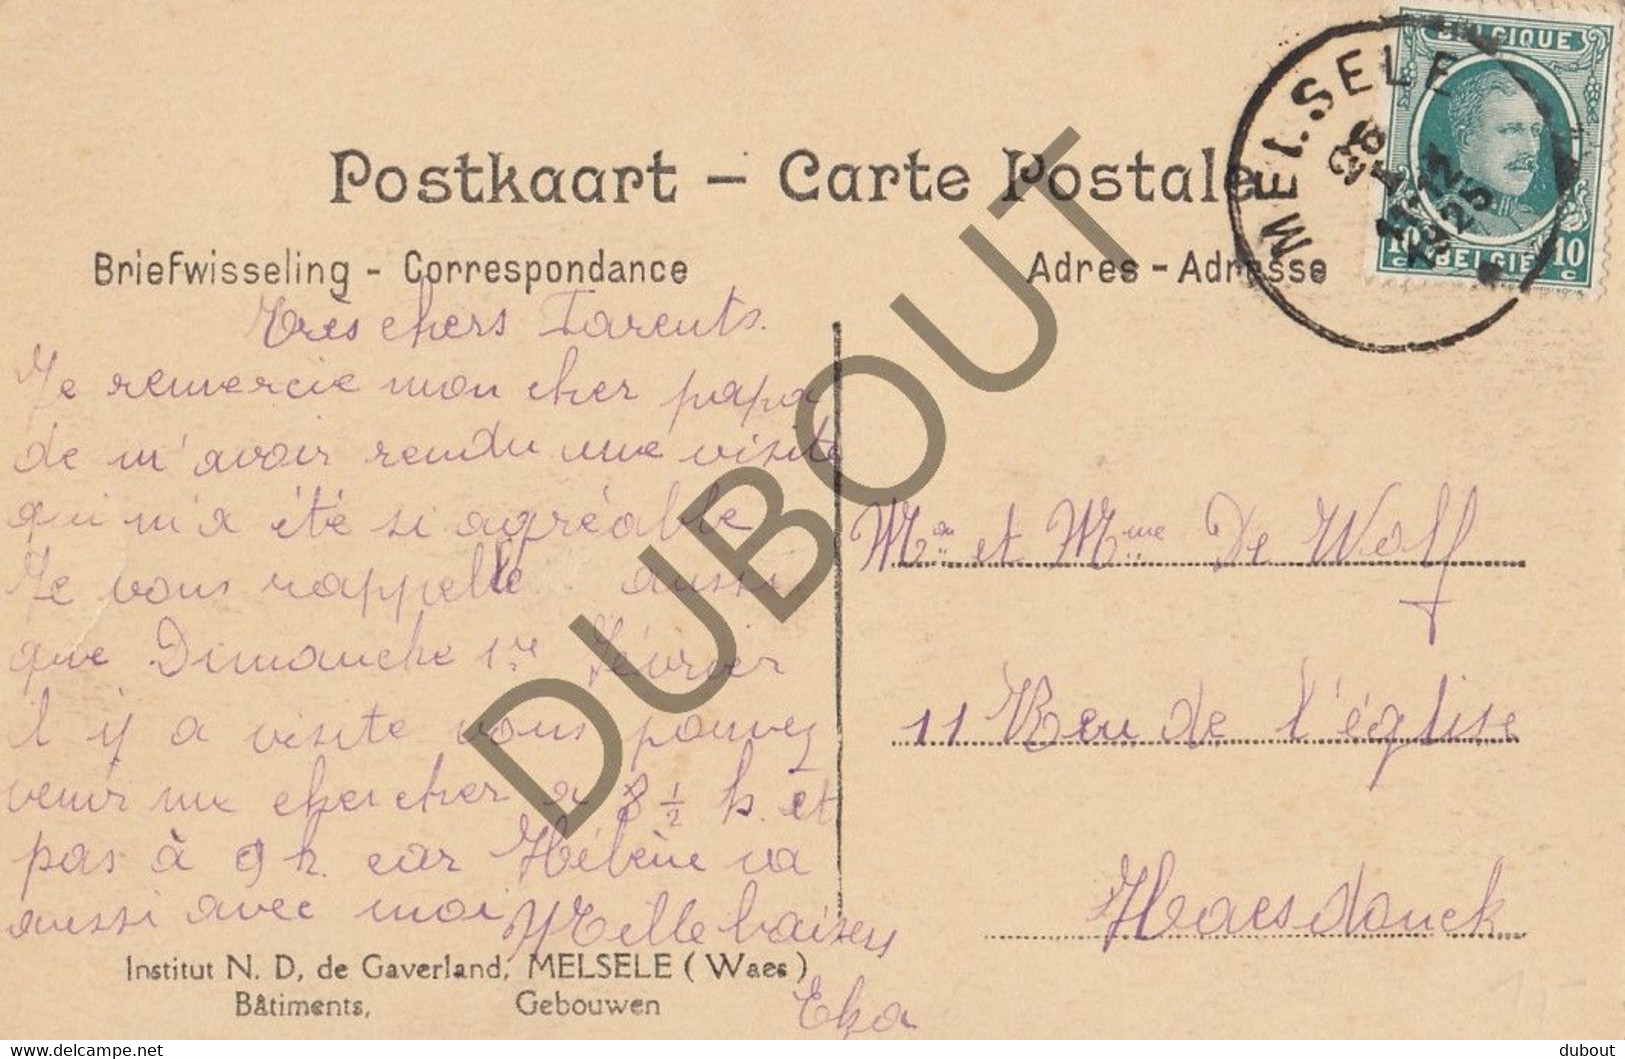 BELGIQUE
MELSELE
26
1
11-12
1925
10c BELGIË 10c
Postkaart - Carte Postale
Briefwisseling - Correspondance
Adres - Adresse
Très chers Parents.
Je remercie mon cher papa
de m'avoir rendu une visite
qui m'a été si agréable
Je vous rappelle aussi
que Dimanche 1re Février
il y a visite vous pouvez
venir me chercher a 8 ½ h. et
pas à 9 h. car Hélène va
aussi avec moi Mille baisers
Mr et Mme De Wolf
11 Reu de l'église
Haesdonck
Institut N. D, de Gaverland, MELSELE (Waes)
Bâtiments, Gebouwen
DUBOUT
delcampe.net
dubout